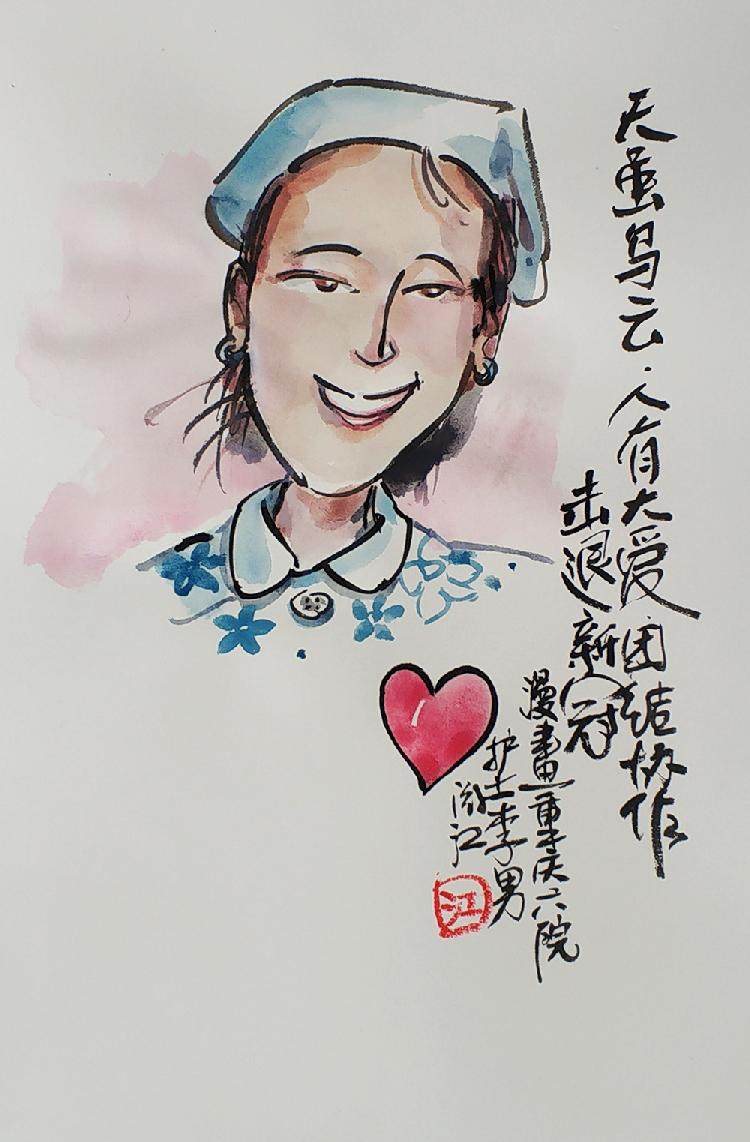 天虽乌云.人有大爱团结协作
击退新冠
漫畫重庆六院
护士李男
江
江